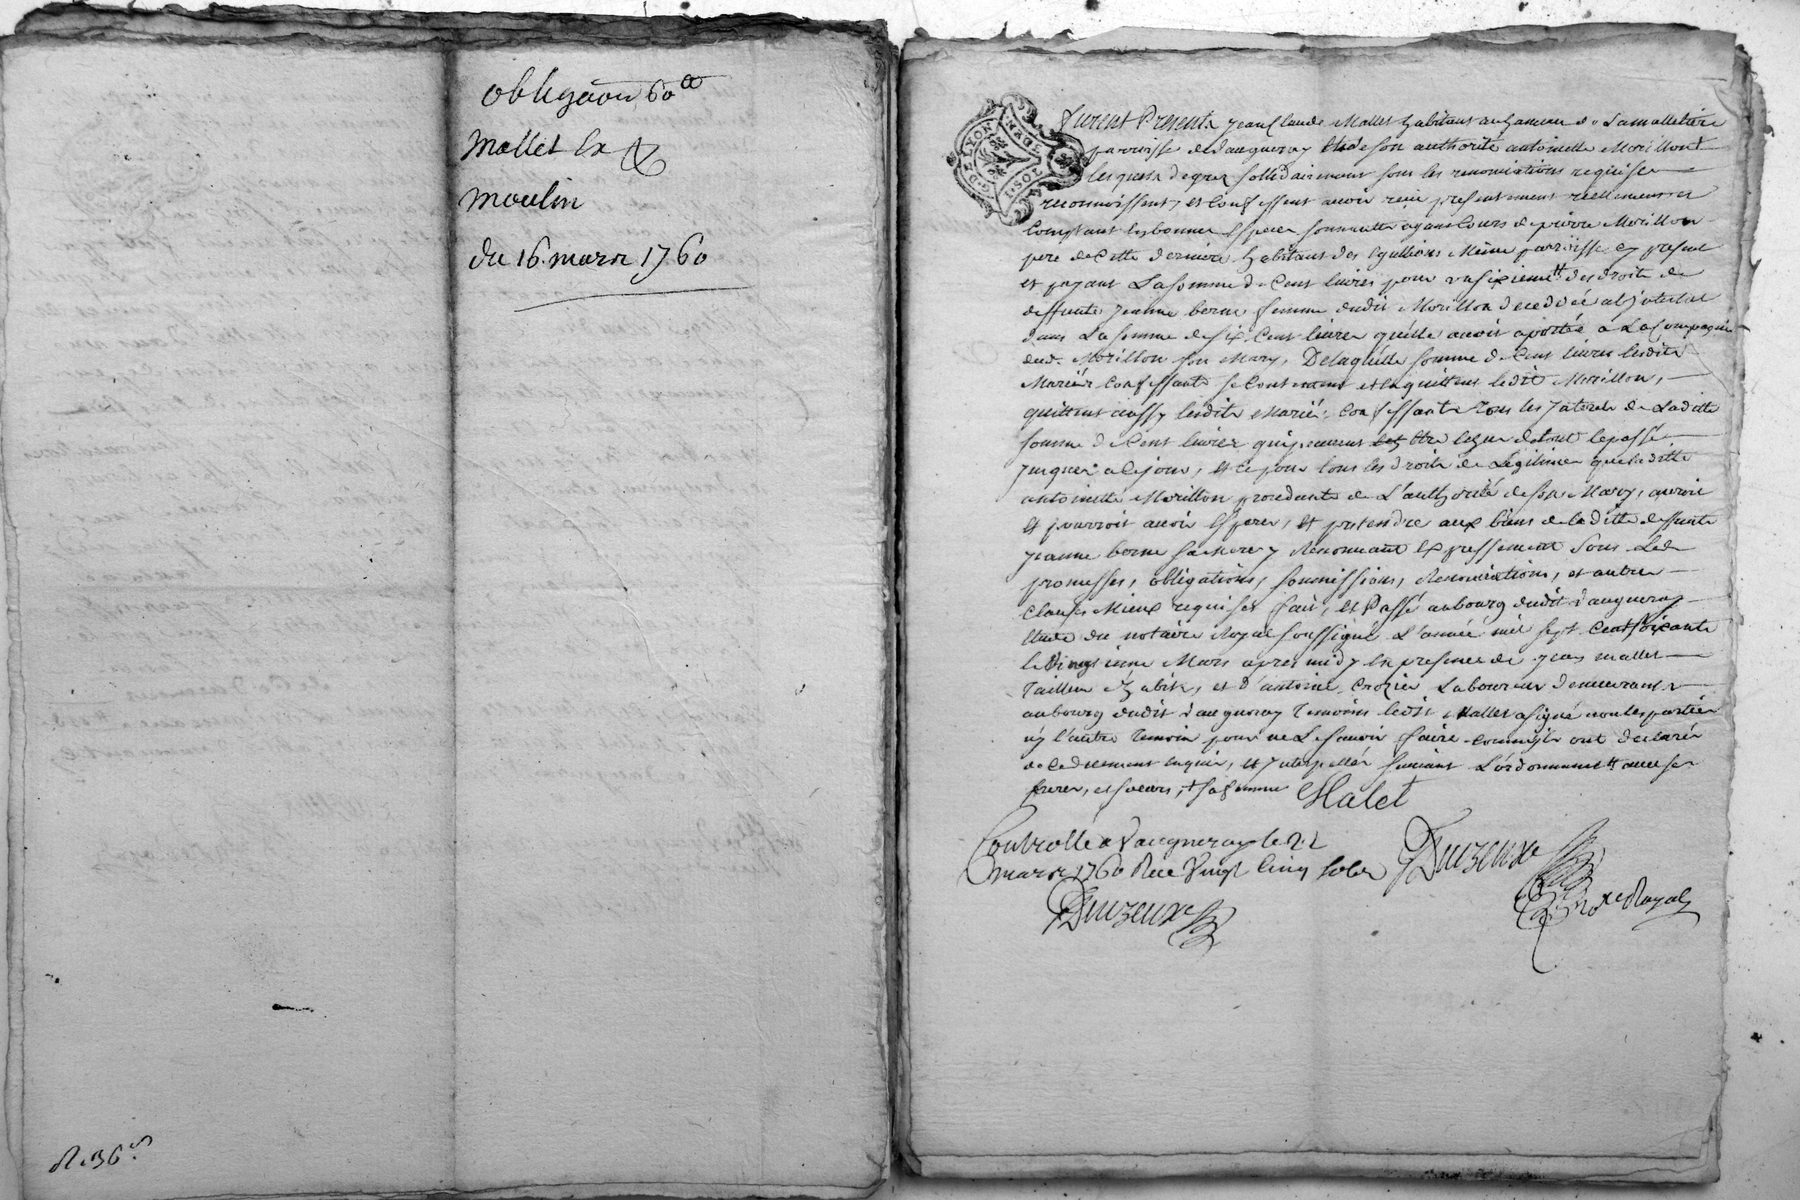 obligaõn 60ᵗᵗ
Mallet Ex
Moulin
du 16. mars 1760
R. 36 s
G. DE LYON
furent Presents Jean Claude Mallet habitant au hameau de Lamalletiere
parroisse de Vaugneray et de son authorité antoinette Morillon
lesquels de grez sollidairement sous les renonciations requises
reconnoissent, et confessent avoir reçu presentement reellement et
comptant en bonnes Especes sonnantes ayant Cours de pierre Morillon
pere de Cette derniere habitant des Eguillions Même parroisse cy present
et payant La somme de Cent livres pour un sixieme des droits de
deffunte Jeanne berne femme dudit Morillon decedée ab intestat
dans La somme de six Cent livres qu'elle avoit aportée a La Compagnie
dud. Morillon son Mary, De laquelle somme de Cent livres lesdits
Mariés Confessants se Contentent et en quittent ledit Morillon,
quittent aussy lesdits Mariés Confessants tous les Interets de Laditte
somme de Cent livres qui peuvent etre echus de tout le passé
Jusques a Ce jour, et Ce pour tous les droits de Legitime que laditte
antoinette Morillon procedante de L'authorité de son Mary, auroit
et pourroit avoir esperer, et pretendre aux biens de laditte deffunte
Jeanne berne sa mere y Renonceant Expressement Sous Les
promesses, obligations, soumissions, Renonciations, et autres
Clauses Mieux requises fait, et Passé au bourg dudit Vaugneray
Etude du notaire Royal soussigné L'année mil sept Cent soixante
le Vingtieme Mars apres midy En presence de Jean Mallet
Tailleur d'habits, et d'antoine Crozier Laboureur demeurants
au bourg dudit Vaugneray Temoins ledit Mallet a signé non les parties
ny l'autre temoin pour ne Le savoir faire Comme ils ont declaré
de Ce duement enquis, et Interpellés suivant L'ordonnance avec ses
freres, et soeurs, + sa femme Malet
Controllé a Vaugneray le 21
mars 1760 Reçu Vingt Cinq sols
Duizeux
Duizeux
no.re Royal